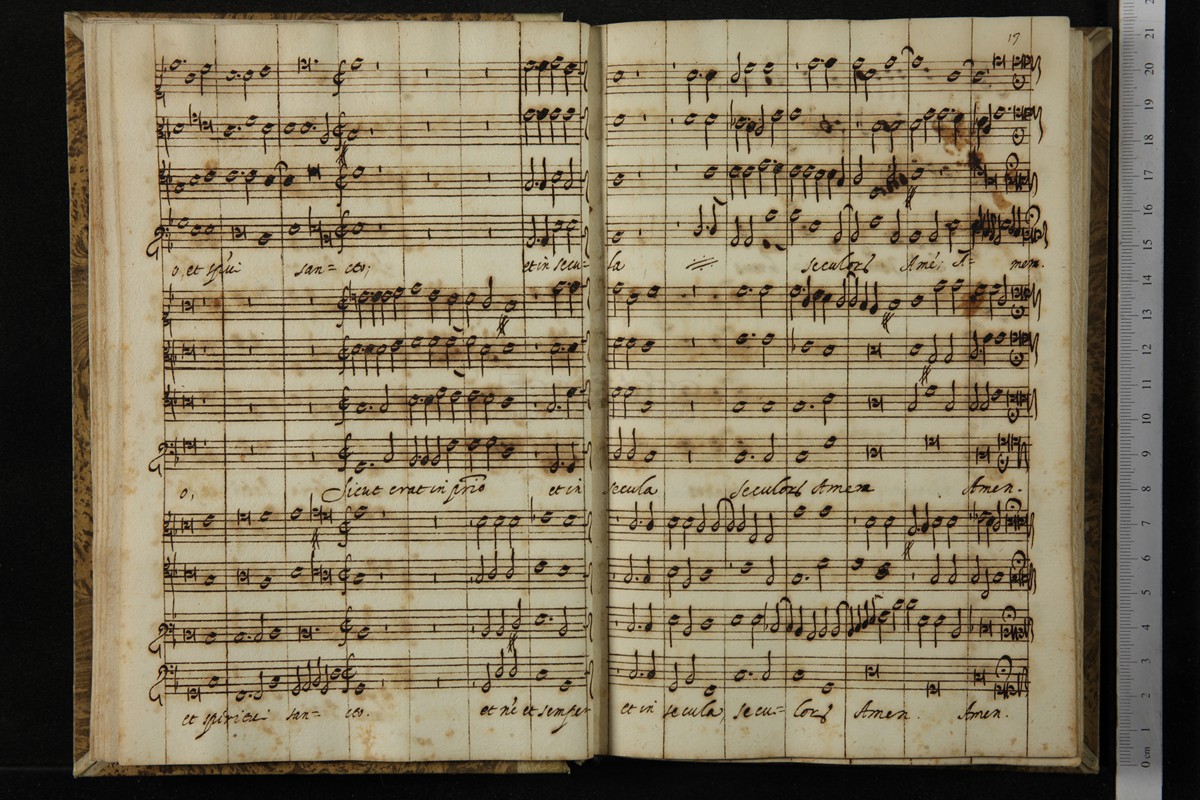 17
o, et sp'ui san= cto; et in secu= la seculorȝ Amē; A= men.
o, Sicut erat in prīo et in secula seculorȝ Amen Amen.
et spiritui san= cto. et nc̄ et semper et in secula, secu= lorȝ Amen. Amen.
0 cm 1 2 3 4 5 6 7 8 9 10 11 12 13 14 15 16 17 18 19 20 21